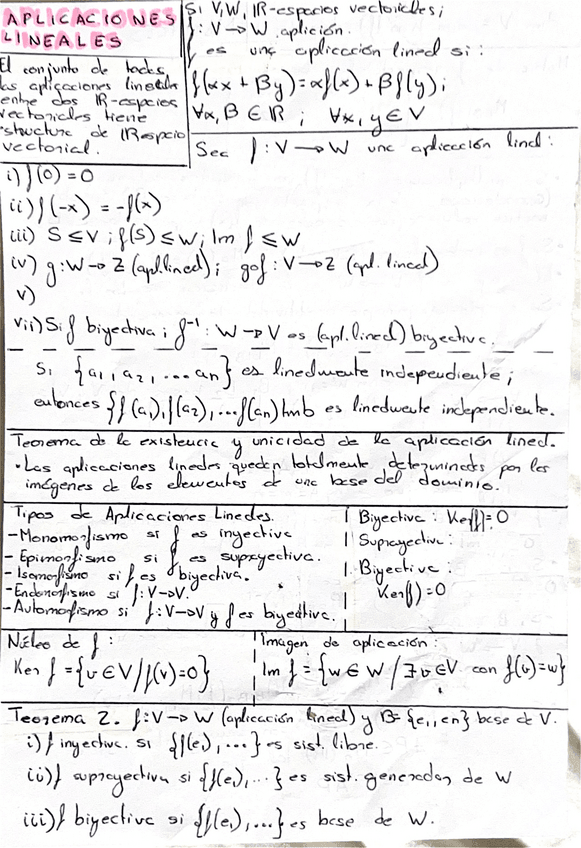 APLICACIONES
LINEALES
El conjunto de todas
las aplicaciones lineales
entre dos IR-espacios
vectoriales tiene
structure de IRespacio
vectorial.
Si V,W, IR-espacios vectoriales;
f: V → W aplición.
f es una aplicación lineal si:
f(αx + βy) = αf(x) + βf(y);
∀α, β ∈ IR ; ∀x, y ∈ V
Sea f: V → W una aplicación lineal:
i) f(0) = 0
ii) f(-x) = -f(x)
iii) S ≤ V ; f(S) ≤ W; Im f ≤ W
iv) g: W → Z (apl. lineal); gof : V → Z (apl. lineal)
v)
vii) Si f biyectiva ; f⁻¹: W → V es (apl. lineal) biyectiva.
Si {a1, a2, ... an} es linealmente independiente;
entonces {f(a1), f(a2), ... f(an) tmb es linealmente independiente.
Teorema de la existencia y unicidad de la aplicación lineal.
• Las aplicaciones lineales quedan totalmente determinadas por las
imágenes de los elementos de una base del dominio.
Tipos de Aplicaciones Lineales.
- Monomorfismo si f es inyectiva
- Epimorfismo si f es suprayectiva.
- Isomorfismo si f es biyectiva.
- Endomorfismo si f: V→V.
- Automorfismo si f: V→V y f es biyectiva.
Biyectiva: Ker(f)=0
Suprayectiva:
Biyectiva:
Ker(f)=0
Núcleo de f:
Ker f = {v ∈ V / f(v) = 0}
Imagen de aplicación:
Im f = {w ∈ W / ∃ v ∈ V con f(v) = w}
Teorema 2. f: V → W (aplicación lineal) y B= {e1, en} base de V.
i) f inyectiva si {f(e1), ...} es sist. libre.
ii) f suprayectiva si {f(e1), ...} es sist. generador de W
iii) f biyectiva si {f(e1), ...} es base de W.